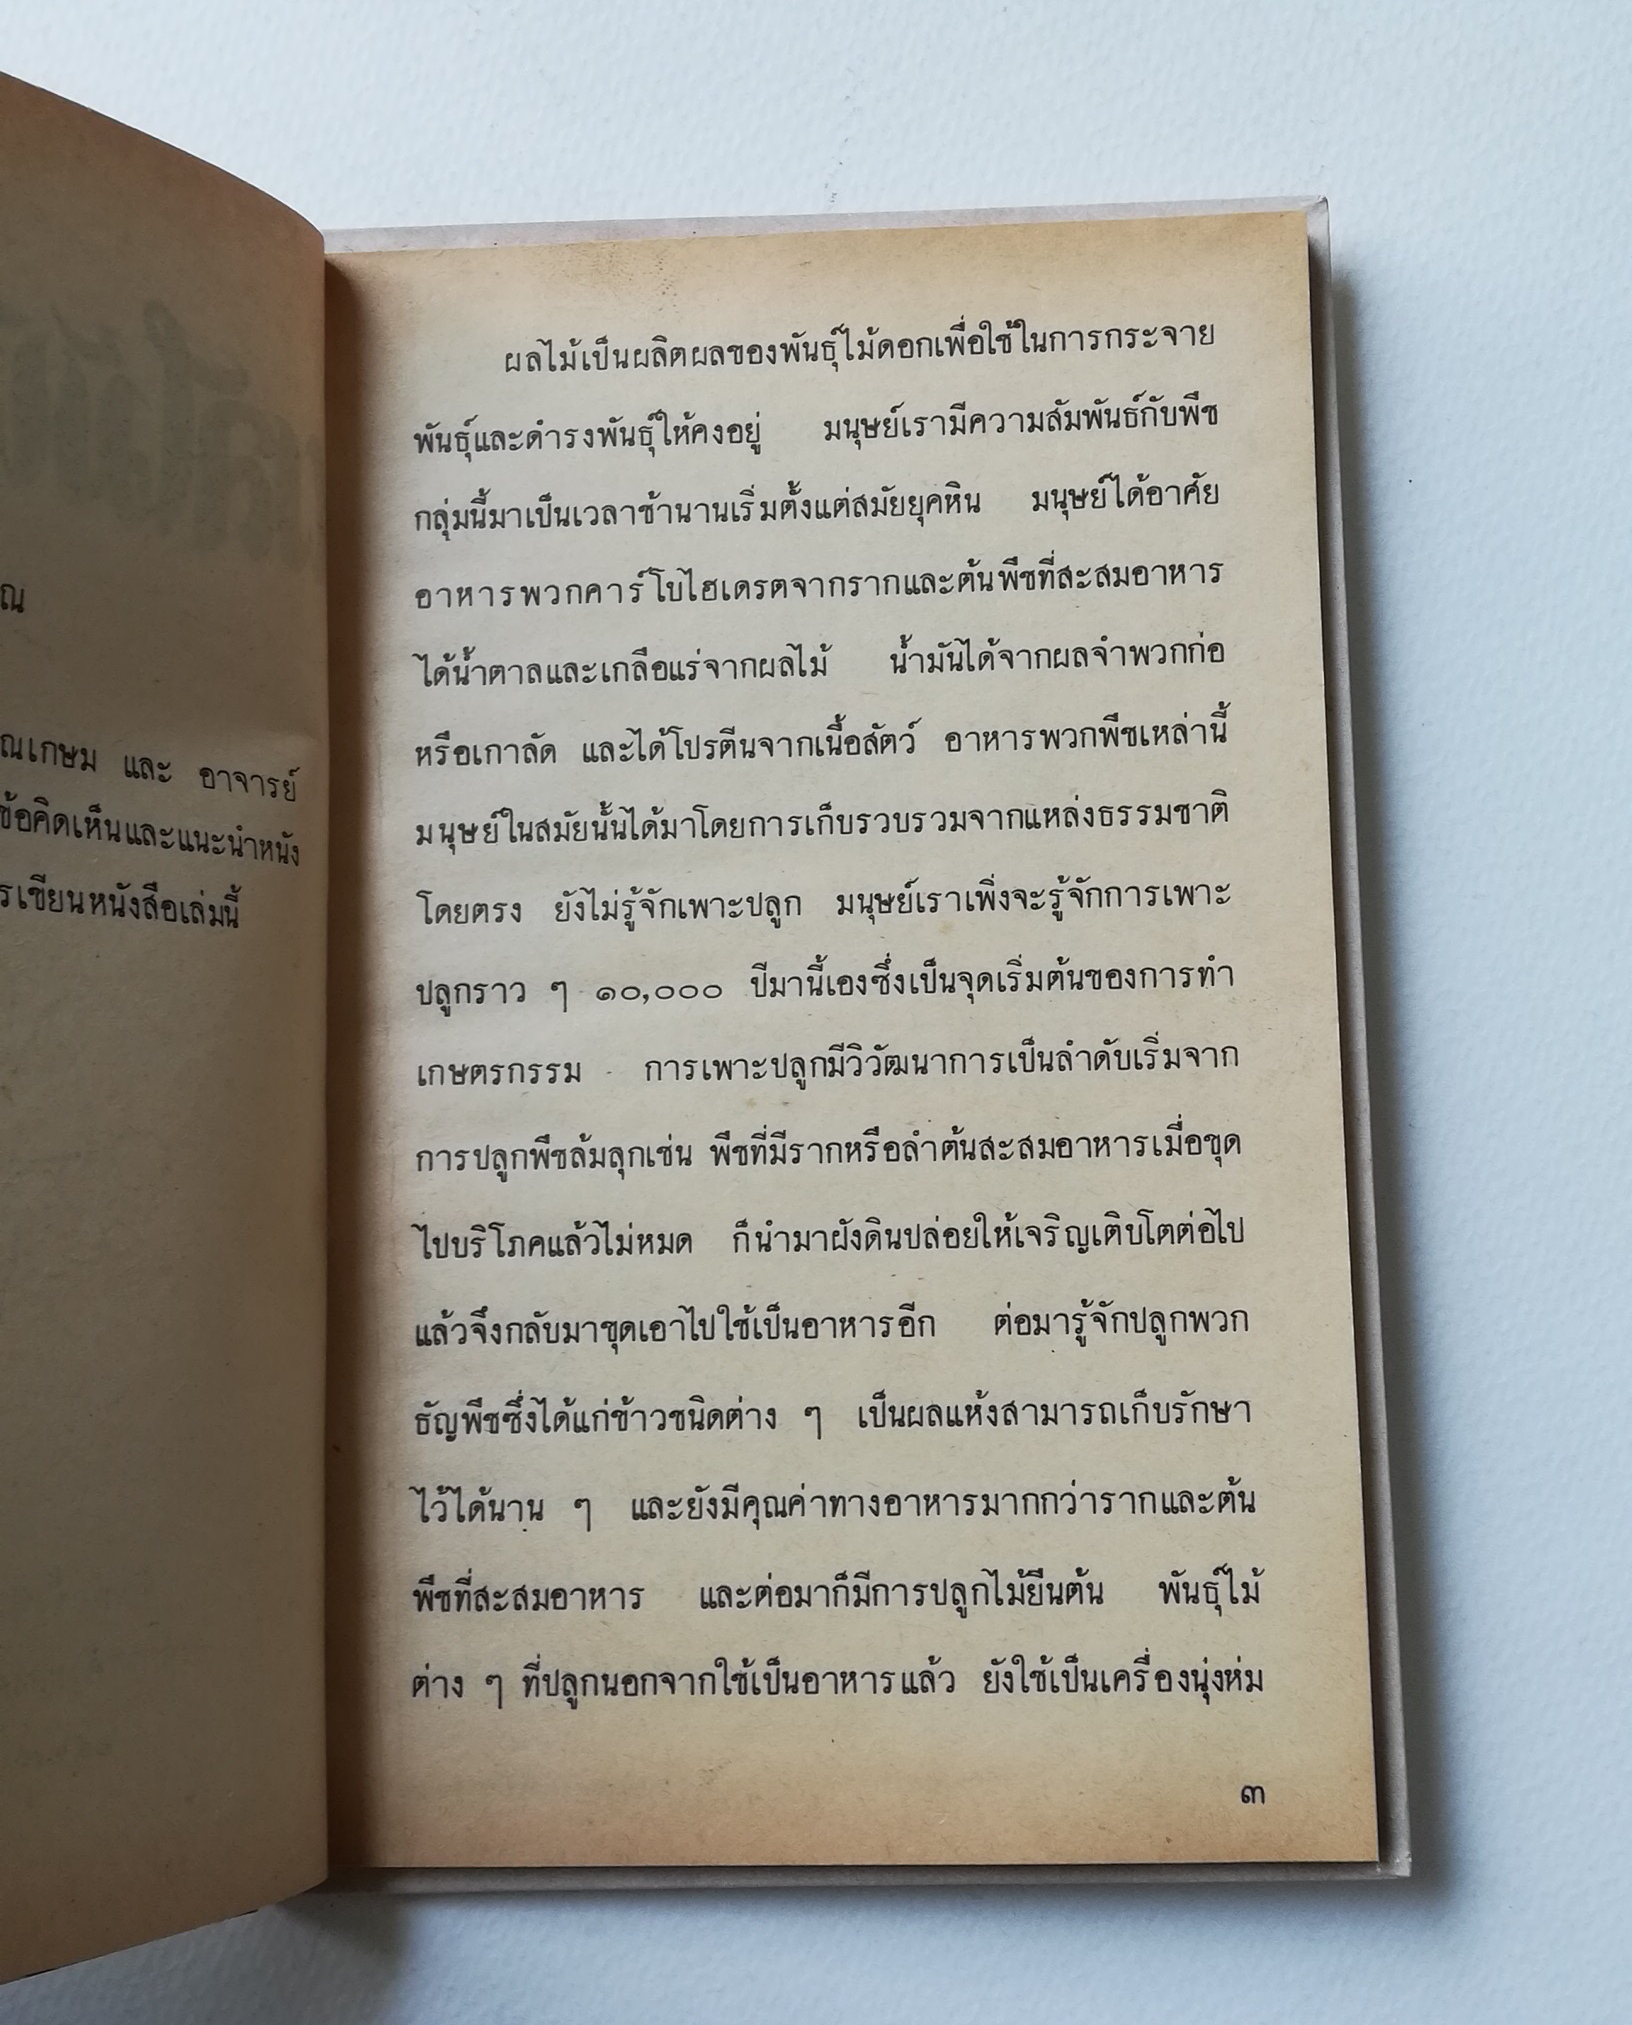 ณ
ณเกษม และ อาจารย์
ข้อคิดเห็นและแนะนำหนัง
รเขียนหนังสือเล่มนี้
ผลไม้เป็นผลิตผลของพันธุ์ไม้ดอกเพื่อใช้ในการกระจาย
พันธุ์และดำรงพันธุ์ให้คงอยู่ มนุษย์เรามีความสัมพันธ์กับพืช
กลุ่มนี้มาเป็นเวลาช้านานเริ่มตั้งแต่สมัยยุคหิน มนุษย์ได้อาศัย
อาหารพวกคาร์โบไฮเดรตจากรากและต้นพืชที่สะสมอาหาร
ได้น้ำตาลและเกลือแร่จากผลไม้ น้ำมันได้จากผลจำพวกก่อ
หรือเกาลัด และได้โปรตีนจากเนื้อสัตว์ อาหารพวกพืชเหล่านี้
มนุษย์ในสมัยนั้นได้มาโดยการเก็บรวบรวมจากแหล่งธรรมชาติ
โดยตรง ยังไม่รู้จักเพาะปลูก มนุษย์เราเพิ่งจะรู้จักการเพาะ
ปลูกราว ๆ ๑๐,๐๐๐ ปีมานี้เองซึ่งเป็นจุดเริ่มต้นของการทำ
เกษตรกรรม การเพาะปลูกมีวิวัฒนาการเป็นลำดับเริ่มจาก
การปลูกพืชล้มลุกเช่น พืชที่มีรากหรือลำต้นสะสมอาหารเมื่อขุด
ไปบริโภคแล้วไม่หมด ก็นำมาฝังดินปล่อยให้เจริญเติบโตต่อไป
แล้วจึงกลับมาขุดเอาไปใช้เป็นอาหารอีก ต่อมารู้จักปลูกพวก
ธัญพืชซึ่งได้แก่ข้าวชนิดต่าง ๆ เป็นผลแห้งสามารถเก็บรักษา
ไว้ได้นาน ๆ และยังมีคุณค่าทางอาหารมากกว่ารากและต้น
พืชที่สะสมอาหาร และต่อมาก็มีการปลูกไม้ยืนต้น พันธุ์ไม้
ต่าง ๆ ที่ปลูกนอกจากใช้เป็นอาหารแล้ว ยังใช้เป็นเครื่องนุ่งห่ม
๓